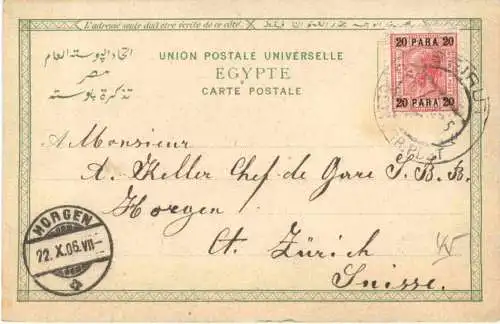 L'adresse seule doit être écrite de ce côté.
اتحاد البوستة العام
مصر
تذكرة بوستة
UNION POSTALE UNIVERSELLE
EGYPTE
CARTE POSTALE
20 PARA 20
20 PARA 20
A Monsieur
A. Keller Chef de Gare S.B.B.
Horgen
Ct. Zürich
Suisse.
HORGEN
22.X.06.VII-